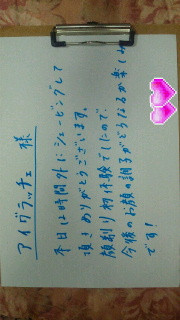 アイグラッチェ 様
本日は時間外にシェービングして
頂きありがとうございます。
顔剃り初体験でしたので、
今後のお顔の調子がどうなるか楽しみ
です!